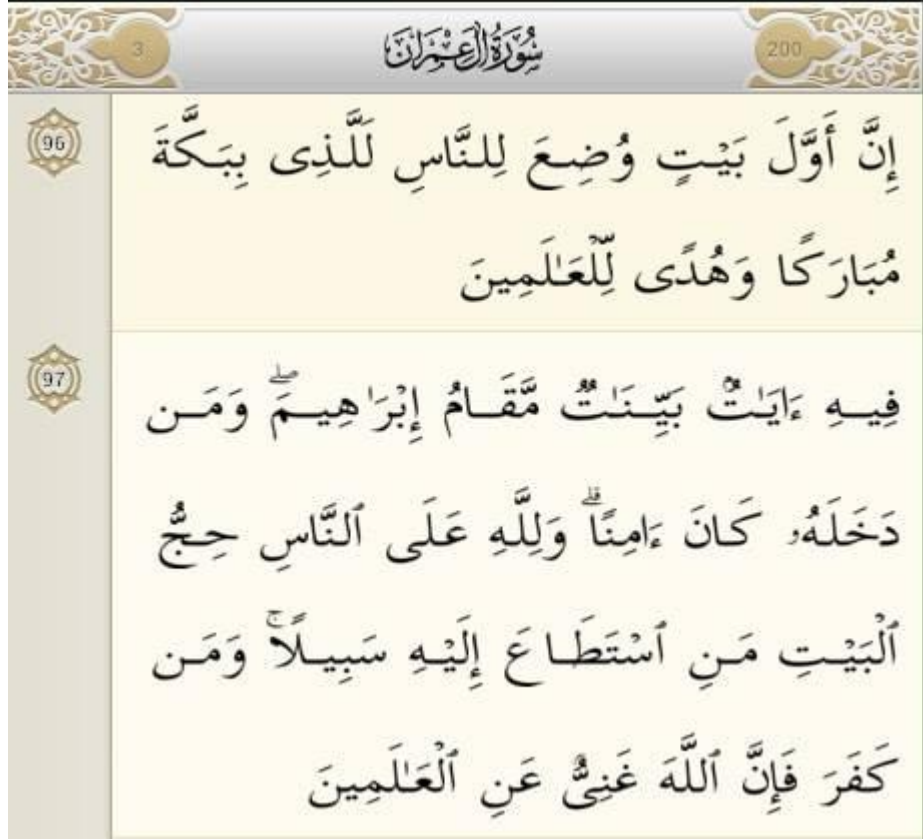 3 سُورَةُ آلِ عِمْرَانَ 200
96 إِنَّ أَوَّلَ بَيْتٍ وُضِعَ لِلنَّاسِ لَلَّذِى بِبَكَّةَ
مُبَارَكًا وَهُدًى لِّلْعَـٰلَمِينَ
97 فِيـهِ ءَايَـٰتٌۢ بَيِّنَـٰتٌ مَّقَـامُ إِبْرَٰهِيـمَ ۖ وَمَـن
دَخَلَهُۥ كَانَ ءَامِنًا ۗ وَلِلَّهِ عَلَى ٱلنَّاسِ حِـجُّ
ٱلْبَيْـتِ مَـنِ ٱسْتَطَـاعَ إِلَيْـهِ سَبِيـلًا ۚ وَمَـن
كَفَرَ فَإِنَّ ٱللَّهَ غَنِىٌّ عَنِ ٱلْعَـٰلَمِينَ